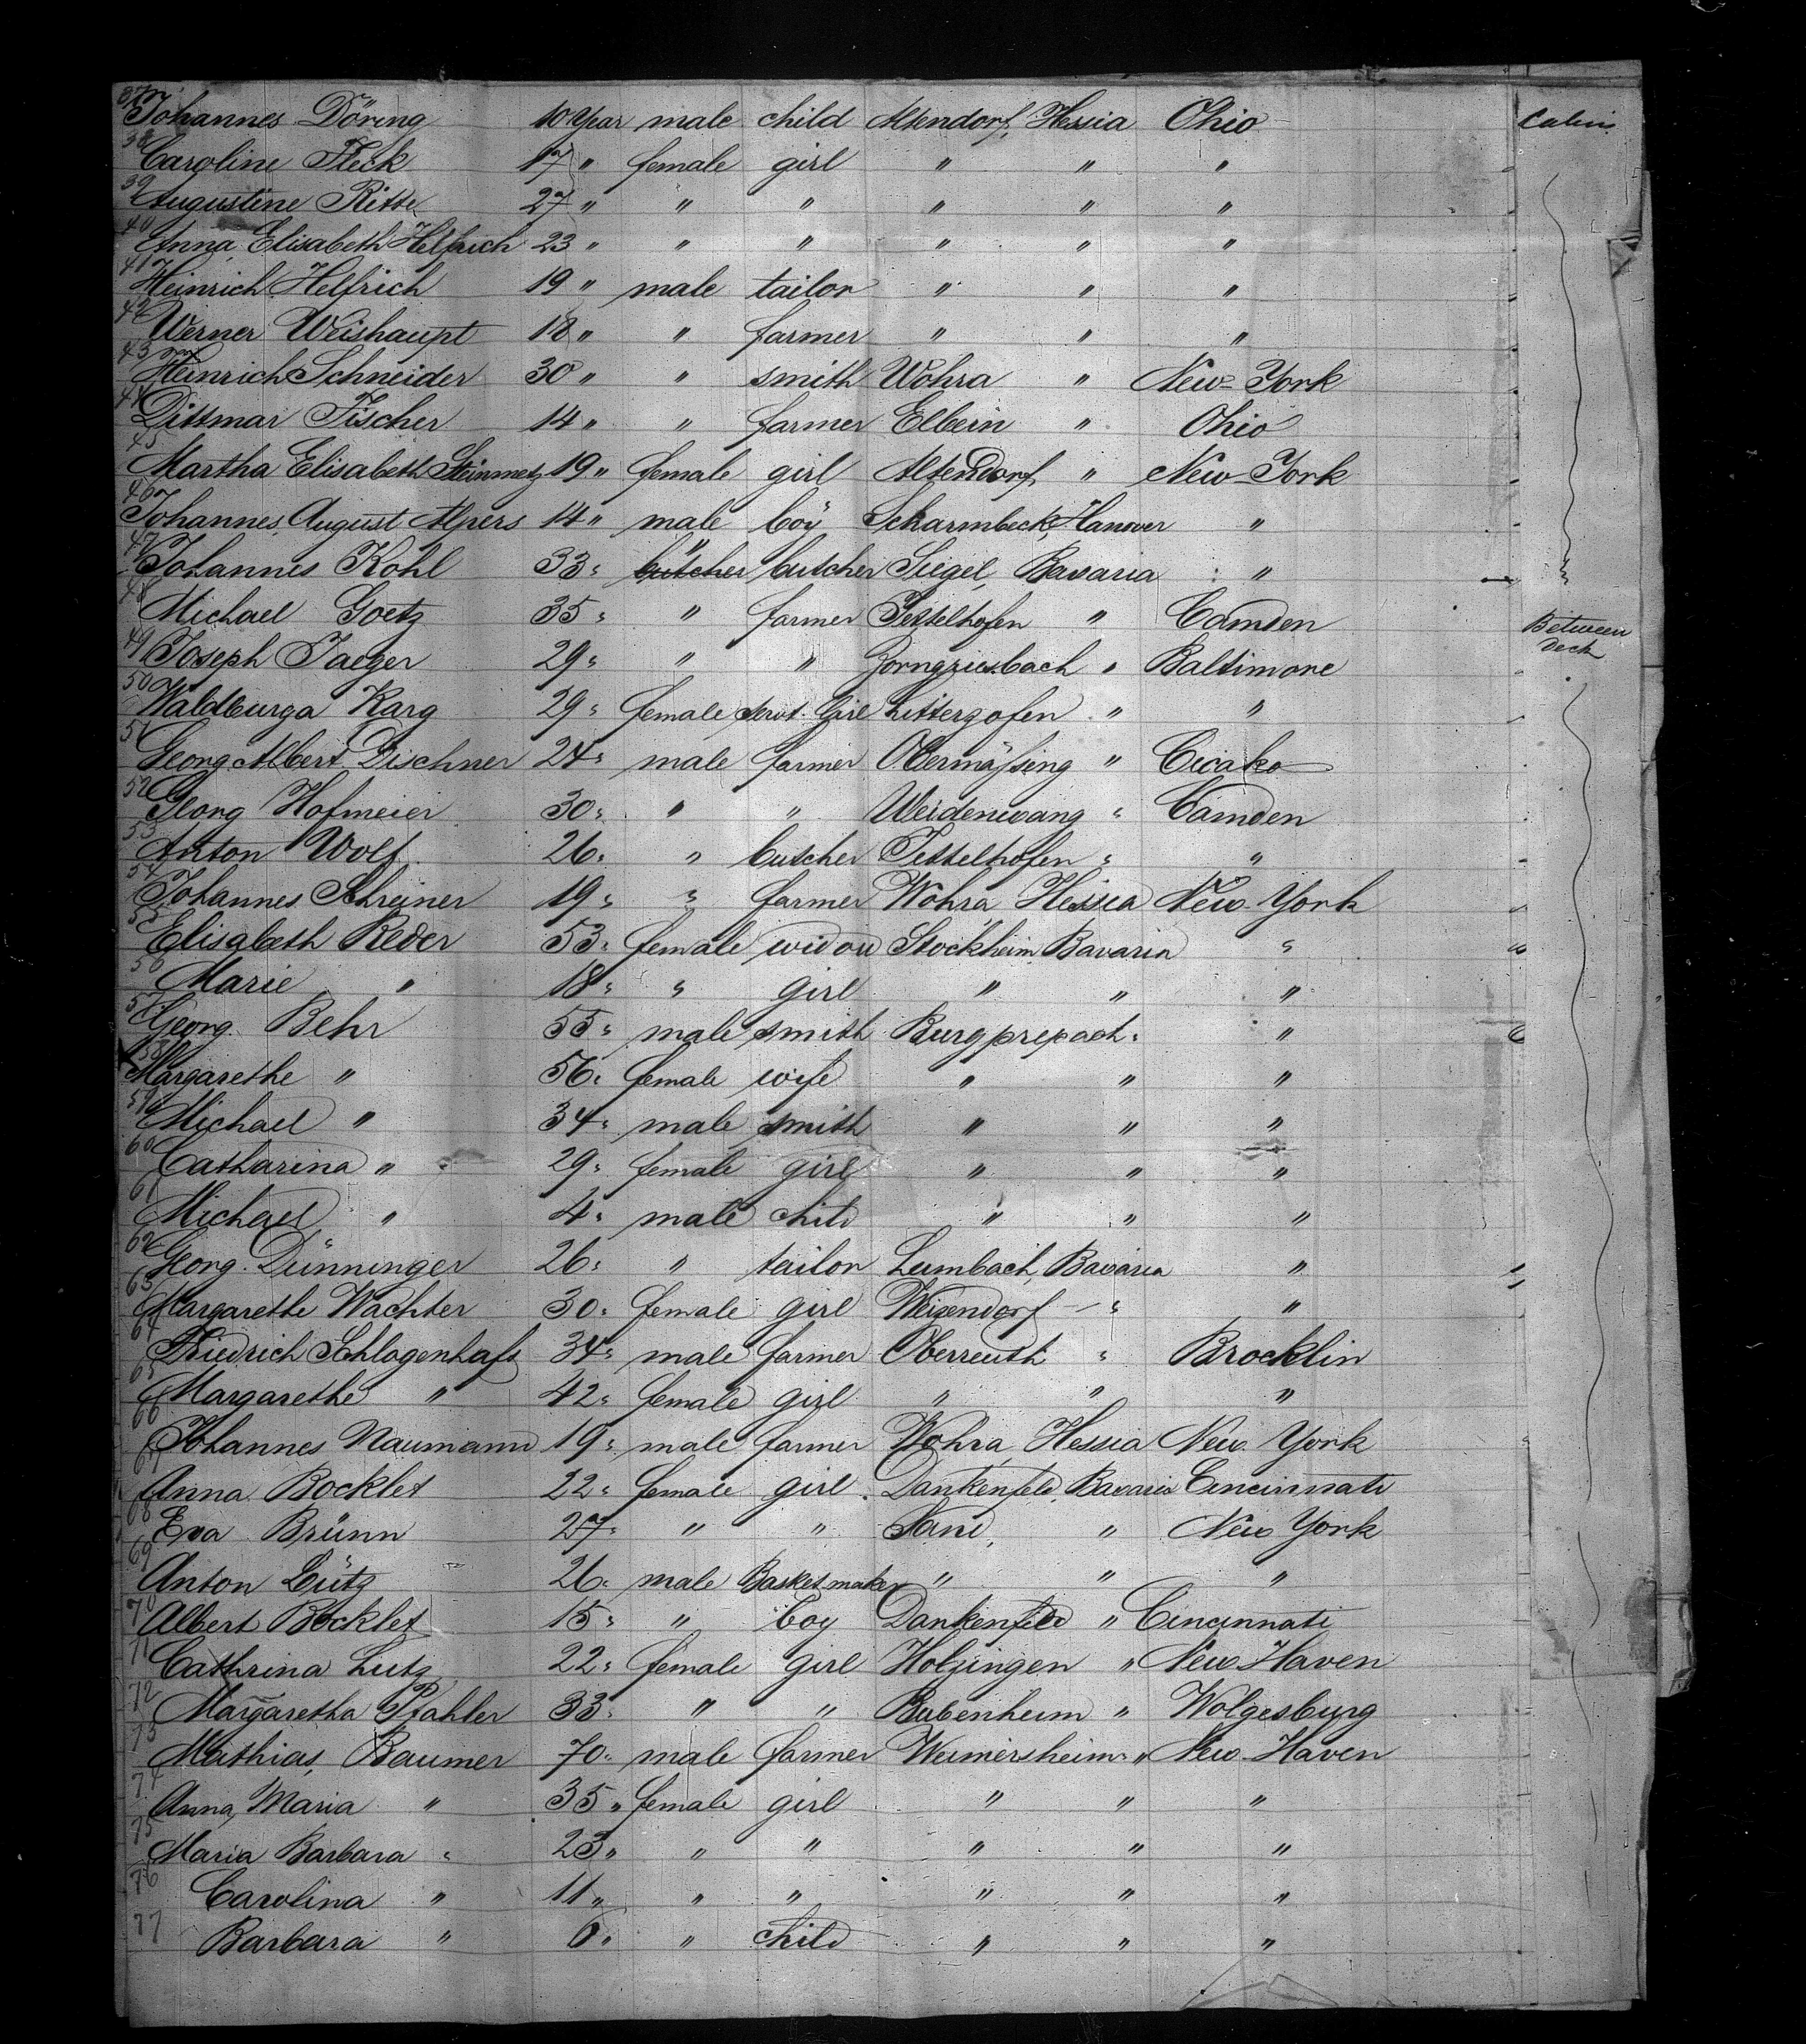 37 Johannes Döring 10 Year male child Altendorf, Hessia Ohio Cabin
38 Caroline Fleck 17 " female girl " " "
39 Augustine Ritte 27 " " " " " "
40 Anna Elisabeth Helfrich 23 " " " " " "
41 Heinrich Helfrich 19 " male tailor " " "
42 Werner Weishaupt 18 " " farmer " " "
43 Heinrich Schneider 30 " " smith Wohra " New-York
44 Dittmar Fischer 14 " " farmer Elbein " Ohio
45 Martha Elisabeth Steinmetz 19 " female girl Altendorf, " New-York
46 Johannes August Alpers 14 " male boy Scharmbeck, Hanover "
47 Johannes Kohl 33 " butcher " butcher Siegel, Bavaria "
48 Michael Goetz 35 " " farmer Jettelhofen " Camden Between Deck
49 Joseph Jaeger 29 " " " Zorngriesbach " Baltimore
50 Waldburga Karg 29 " female servt. Girl Litterzofen " "
51 Georg Albert Dischner 24 " male farmer Obermäßing " Cicako
52 Georg Hofmeier 30 " " " Weidenwang " Camden
53 Anton Wolf 26 " " butcher Jettelhofen " "
54 Johannes Schreiner 19 " " farmer Wohra, Hessia New-York
55 Elisabeth Reder 53 " female widow Stockheim Bavaria "
56 Marie " 18 " " girl " " "
57 Georg Behr 55 " male smith Burgprepach " "
58 Margarethe " 56 " female wife " " "
59 Michael " 34 " male smith " " "
60 Catharina " 29 " female girl " " "
61 Michael " 4 " male child " " "
62 Georg Dünninger 26 " " tailor Leimbach, Bavaria "
63 Margarethe Wachter 30 " female girl Weizendorf " "
64 Friedrich Schlagenhaft 34 " male farmer Oberreuth " Brocklin
65 Margarethe " 42 " female girl " " "
66 Johannes Naumann 19 " male farmer Wohra, Hessia New York
67 Anna Bocklet 22 " female girl Dankenfeld, Bavaria Cincinnati
68 Eva Brünn 27 " " " Sand, " New York
69 Anton Lütz 26 " male Basket maker " " "
70 Albert Bocklet 15 " " boy Dankenfeld " Cincinnati
71 Cathrina Lutz 22 " female girl Holzingen " New Haven
72 Margaretha Pfahler 33 " " " Bubenheim " Wolgesburg
73 Mathias, Baumer 70 " male farmer Weimersheim " New-Haven
74 Anna Maria " 35 " female girl " " "
75 Maria Barbara " 23 " " " " " "
76 Carolina " 11 " " " " " "
77 Barbara " 6 " " child " " "